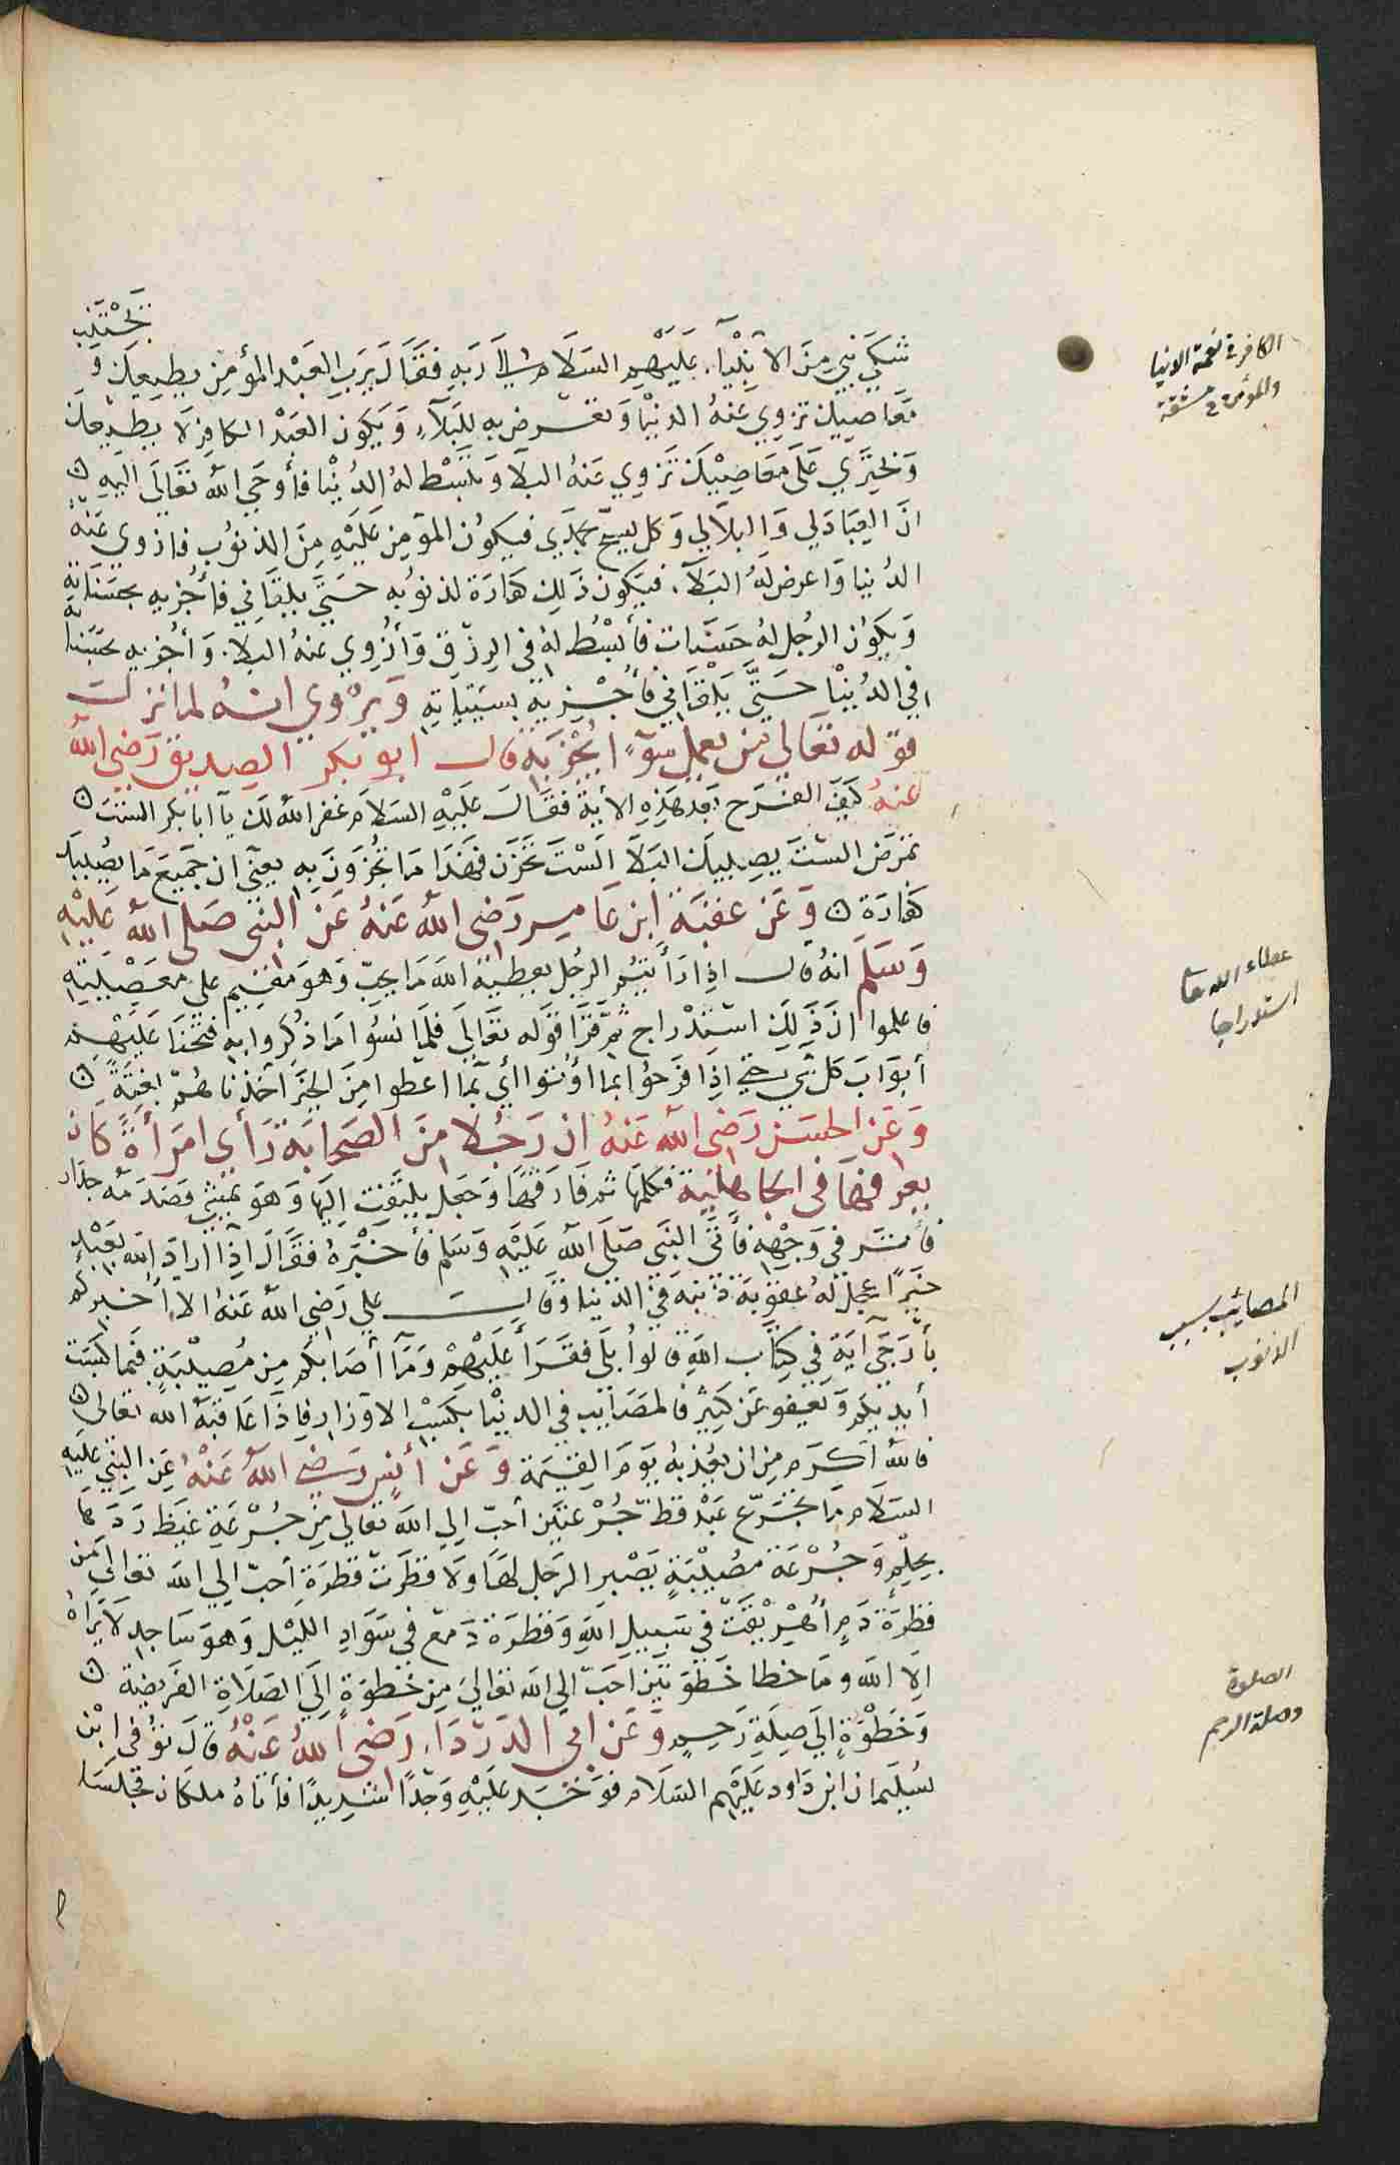 شكي نبي من الانبياء عليهم السلام الي ربه فقال يرب العبد المؤمن يطيعك و تجتنب
معاصيك تزوي عنه الدنيا وتعرضه للبلاء ويكون العبد الكافر لا يطيعك
ويجتري على معاصيك تزوي عنه البلا وتبسط له الدنيا فأوحي الله تعالى اليه
ان العباد لي والبلا لي وكل يسبح بحمدي فيكون المؤمن عليه من الذنوب فازوي عنه
الدنيا واعرض له البلاء فيكون ذلك كفارة لذنوبه حتي يلقاني فأجزيه بحسناته
ويكون الرجل له حسنات فأبسط له في الرزق وأزوي عنه البلا وأجزيه بحسناته
في الدنيا حتى يلقاني فأجزيه بسيئاته ويروي انه لما نزلت
قوله تعالي من يعمل سوءا يجز به قال ابو بكر الصديق رضي الله
عنه كيف الفرح بعد هذه الأية فقال عليه السلام غفر الله لك يآ ابا بكر الست
تمرض الست يصيبك البلا الست تحزن فهذا ما تجزون به يعني ان جميع ما يصيبك
كفارة وعن عقبة ابن عامر رضي الله عنه عن النبي صلى الله عليه
وسلم انه قال اذا رأيتم الرجل يعطيه الله ما يحب وهو مقيم على معصيته
فاعلموا ان ذلك استدراج ثم قرا قوله تعالى فلما نسوا ما ذكروا به فتحنا عليهم
أبواب كل شي حتي اذا فرحوا بما اؤتوا أي بما اعطوا من الخير أخذناهم بغتة
وعن الحسن رضي الله عنه ان رجلا من الصحابة رأي امرأة كان
يعرفها في الجاهلية فكلمها ثم فارقها وجعل يلتفت اليها وهو يمشي فصدمه جدار
فأثر في وجهه فأتى النبي صلى الله عليه وسلم فأخبره فقال اذا اراد الله بعبد
خيرا عجل له عقوبة ذنبه في الدنيا وقال علي رضي الله عنه الا أخبركم
بأرجى آية في كتاب الله قالوا بلى فقرأ عليهم ومآ أصابكم من مصيبة فبما كسبت
أيديكم وتعيفو عن كثير فالمصائب في الدنيا بكسب الاوزار فاذا عاقبه الله تعالى
فالله اكرم من ان يعذبه يوم القيمة وعن أنس رضي الله عنه عن النبي عليه
السلام ما تجرع عبد قط جرعتين أحب الي الله تعالي من جرعة غيظ ردها
بحلم وجرعة مصيبة يصبر الرجل لها ولا قطرت قطرة أحب الي الله تعالى من
قطرة دم أهريقت في سبيل الله وقطرة دمع في سواد الليل وهو ساجد لا يراه
الا الله وما خطا خطوتين احب الي الله تعالي من خطوة إلى الصلاة الفريضة
وخطوة إلى صلة رحم وعن ابي الدرداء رضي الله عنه قال توفي ابن
لسليمان ابن داود عليهم السلام فوجد عليه وجدا شديدا فأتاه ملكان فجلسا
الكافر في نعمة الدنيا
والمؤمن في مشقة
عطاء الله
استدراجا
المصائب بسبب
الذنوب
الصلوة
وصلة الرحم